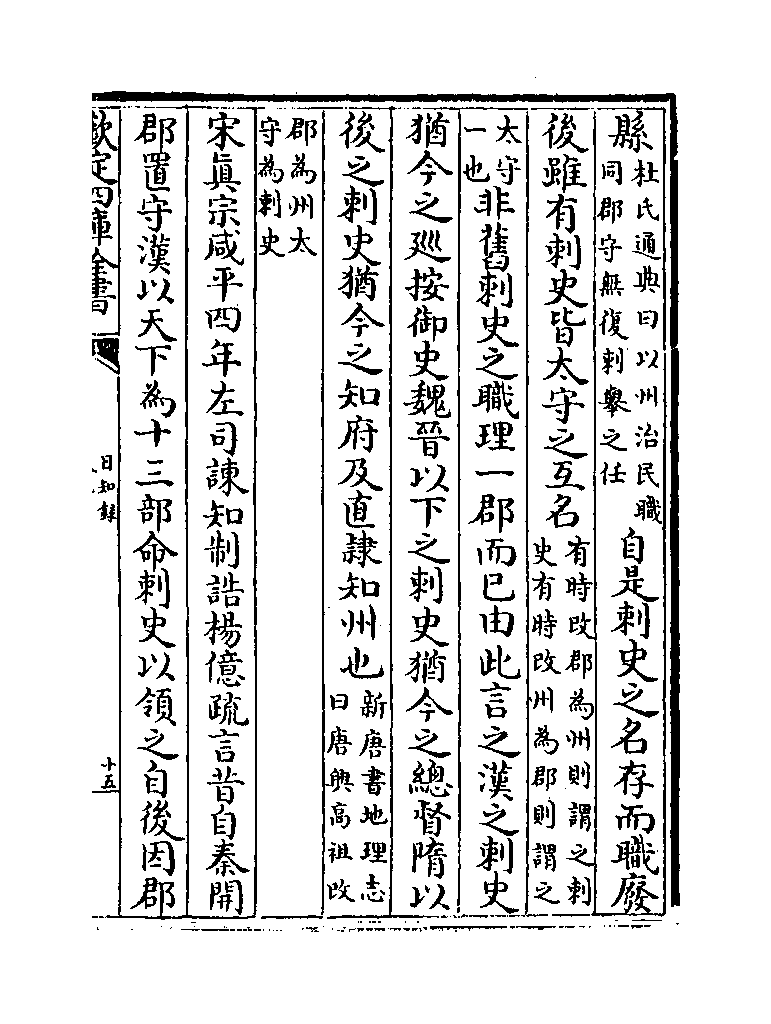 縣杜氏通典曰以州治民職同郡守無復刺舉之任自是刺史之名存而職廢
後雖有刺史皆太守之互名有時改郡為州則謂之刺史有時改州為郡則謂之
太守一也非舊刺史之職理一郡而已由此言之漢之刺史
猶今之廵按御史魏晉以下之刺史猶今之總督隋以
後之刺史猶今之知府及直隷知州也新唐書地理志曰唐興高祖改
郡為州太守為刺史
宋真宗咸平四年左司諫知制誥楊億疏言昔自秦開
郡置守漢以天下為十三部命刺史以領之自後因郡
欽定四庫全書
日知錄
十五